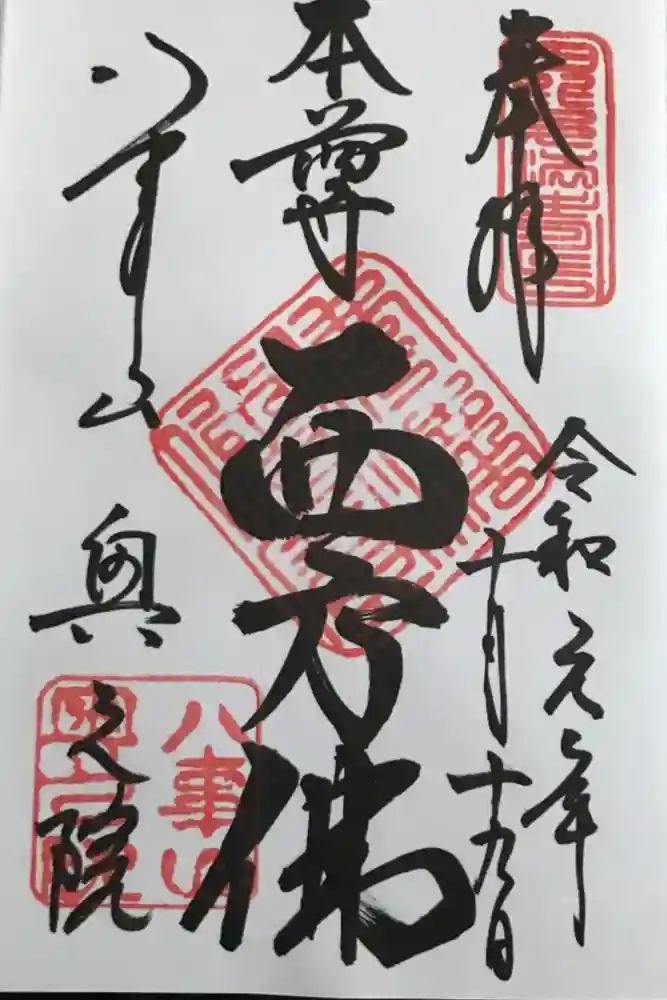 奉拝
令和元年
十月十九日
本尊
西方佛
八事山
興之院
八事山